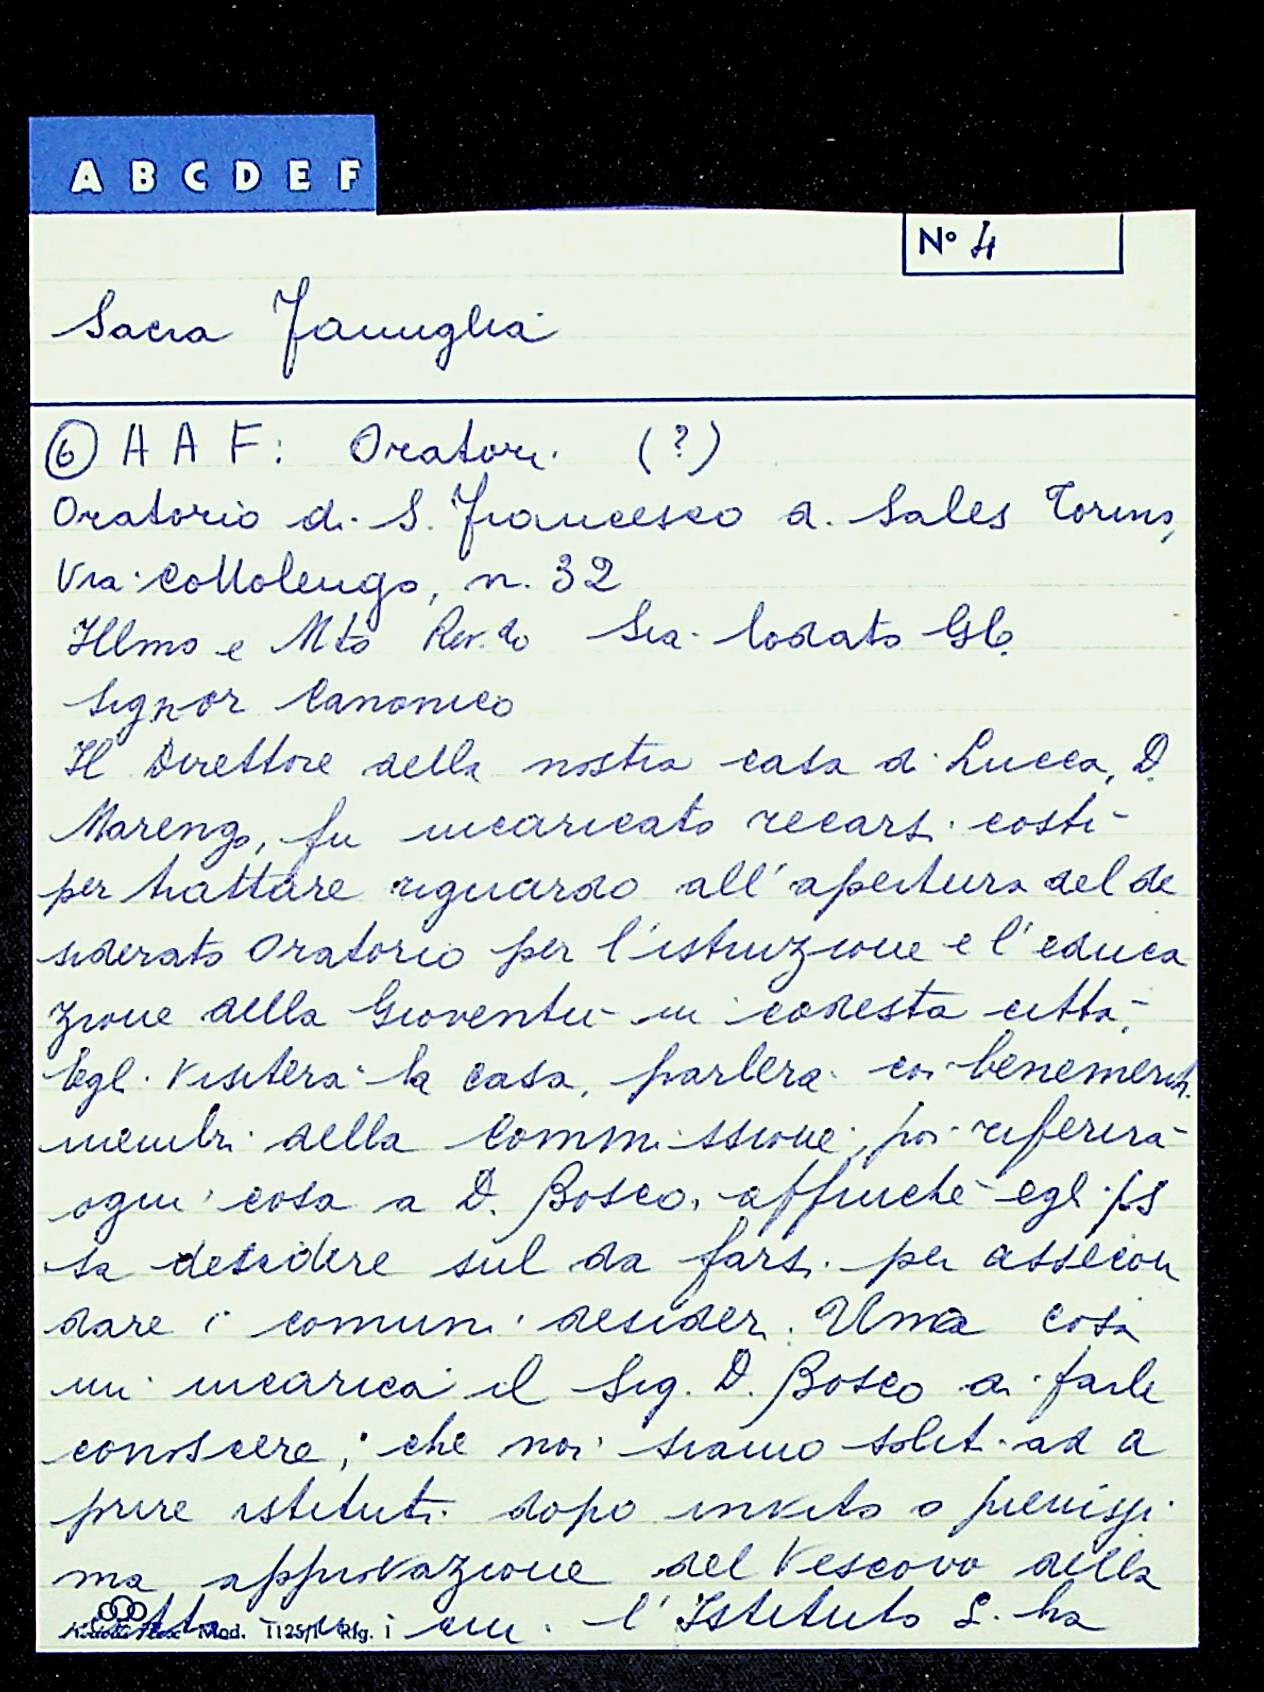 A B C D E F
N° 4
Sacra Famiglia
⑥ A A F: Oratori. (?)
Oratorio di S. Francesco di Sales Torino,
Via Cottolengo, n. 32
Illmo e Mto Rev.do Sia lodato G.C.
Signor Canonico
Il Direttore della nostra casa di Lucca, D.
Marengo, fu incaricato recarsi costì
per trattare riguardo all'apertura del de
siderato Oratorio per l'istruzione e l'educa
zione della Gioventù in codesta città.
Egli visiterà la casa, parlerà coi benemeriti
membri della Commissione, poi riferirà
ogni cosa a D. Bosco, affinché egli pos
sa desidere sul da farsi per assecon
dare i comuni desideri. Una cosa
mi incarica il Sig. D. Bosco di farle
conoscere; che noi siamo soliti ad a
prire istituti dopo invito o pienissi
ma approvazione del Vescovo della
città in cui l'Istituto S. ha
Mod. T125/1 Rig. i